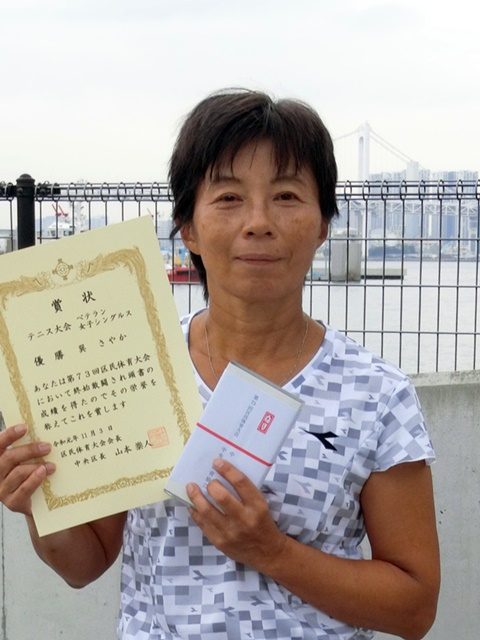 賞状
テニス大会 ベテラン
女子シングルス
優勝 巽 さやか
あなたは第73回区民体育大会
において終始敢闘され頭書の
成績を得たのでその栄誉を
称えてこれを賞します
令和元年11月3日
区民体育大会会長
中央区長 山本泰人